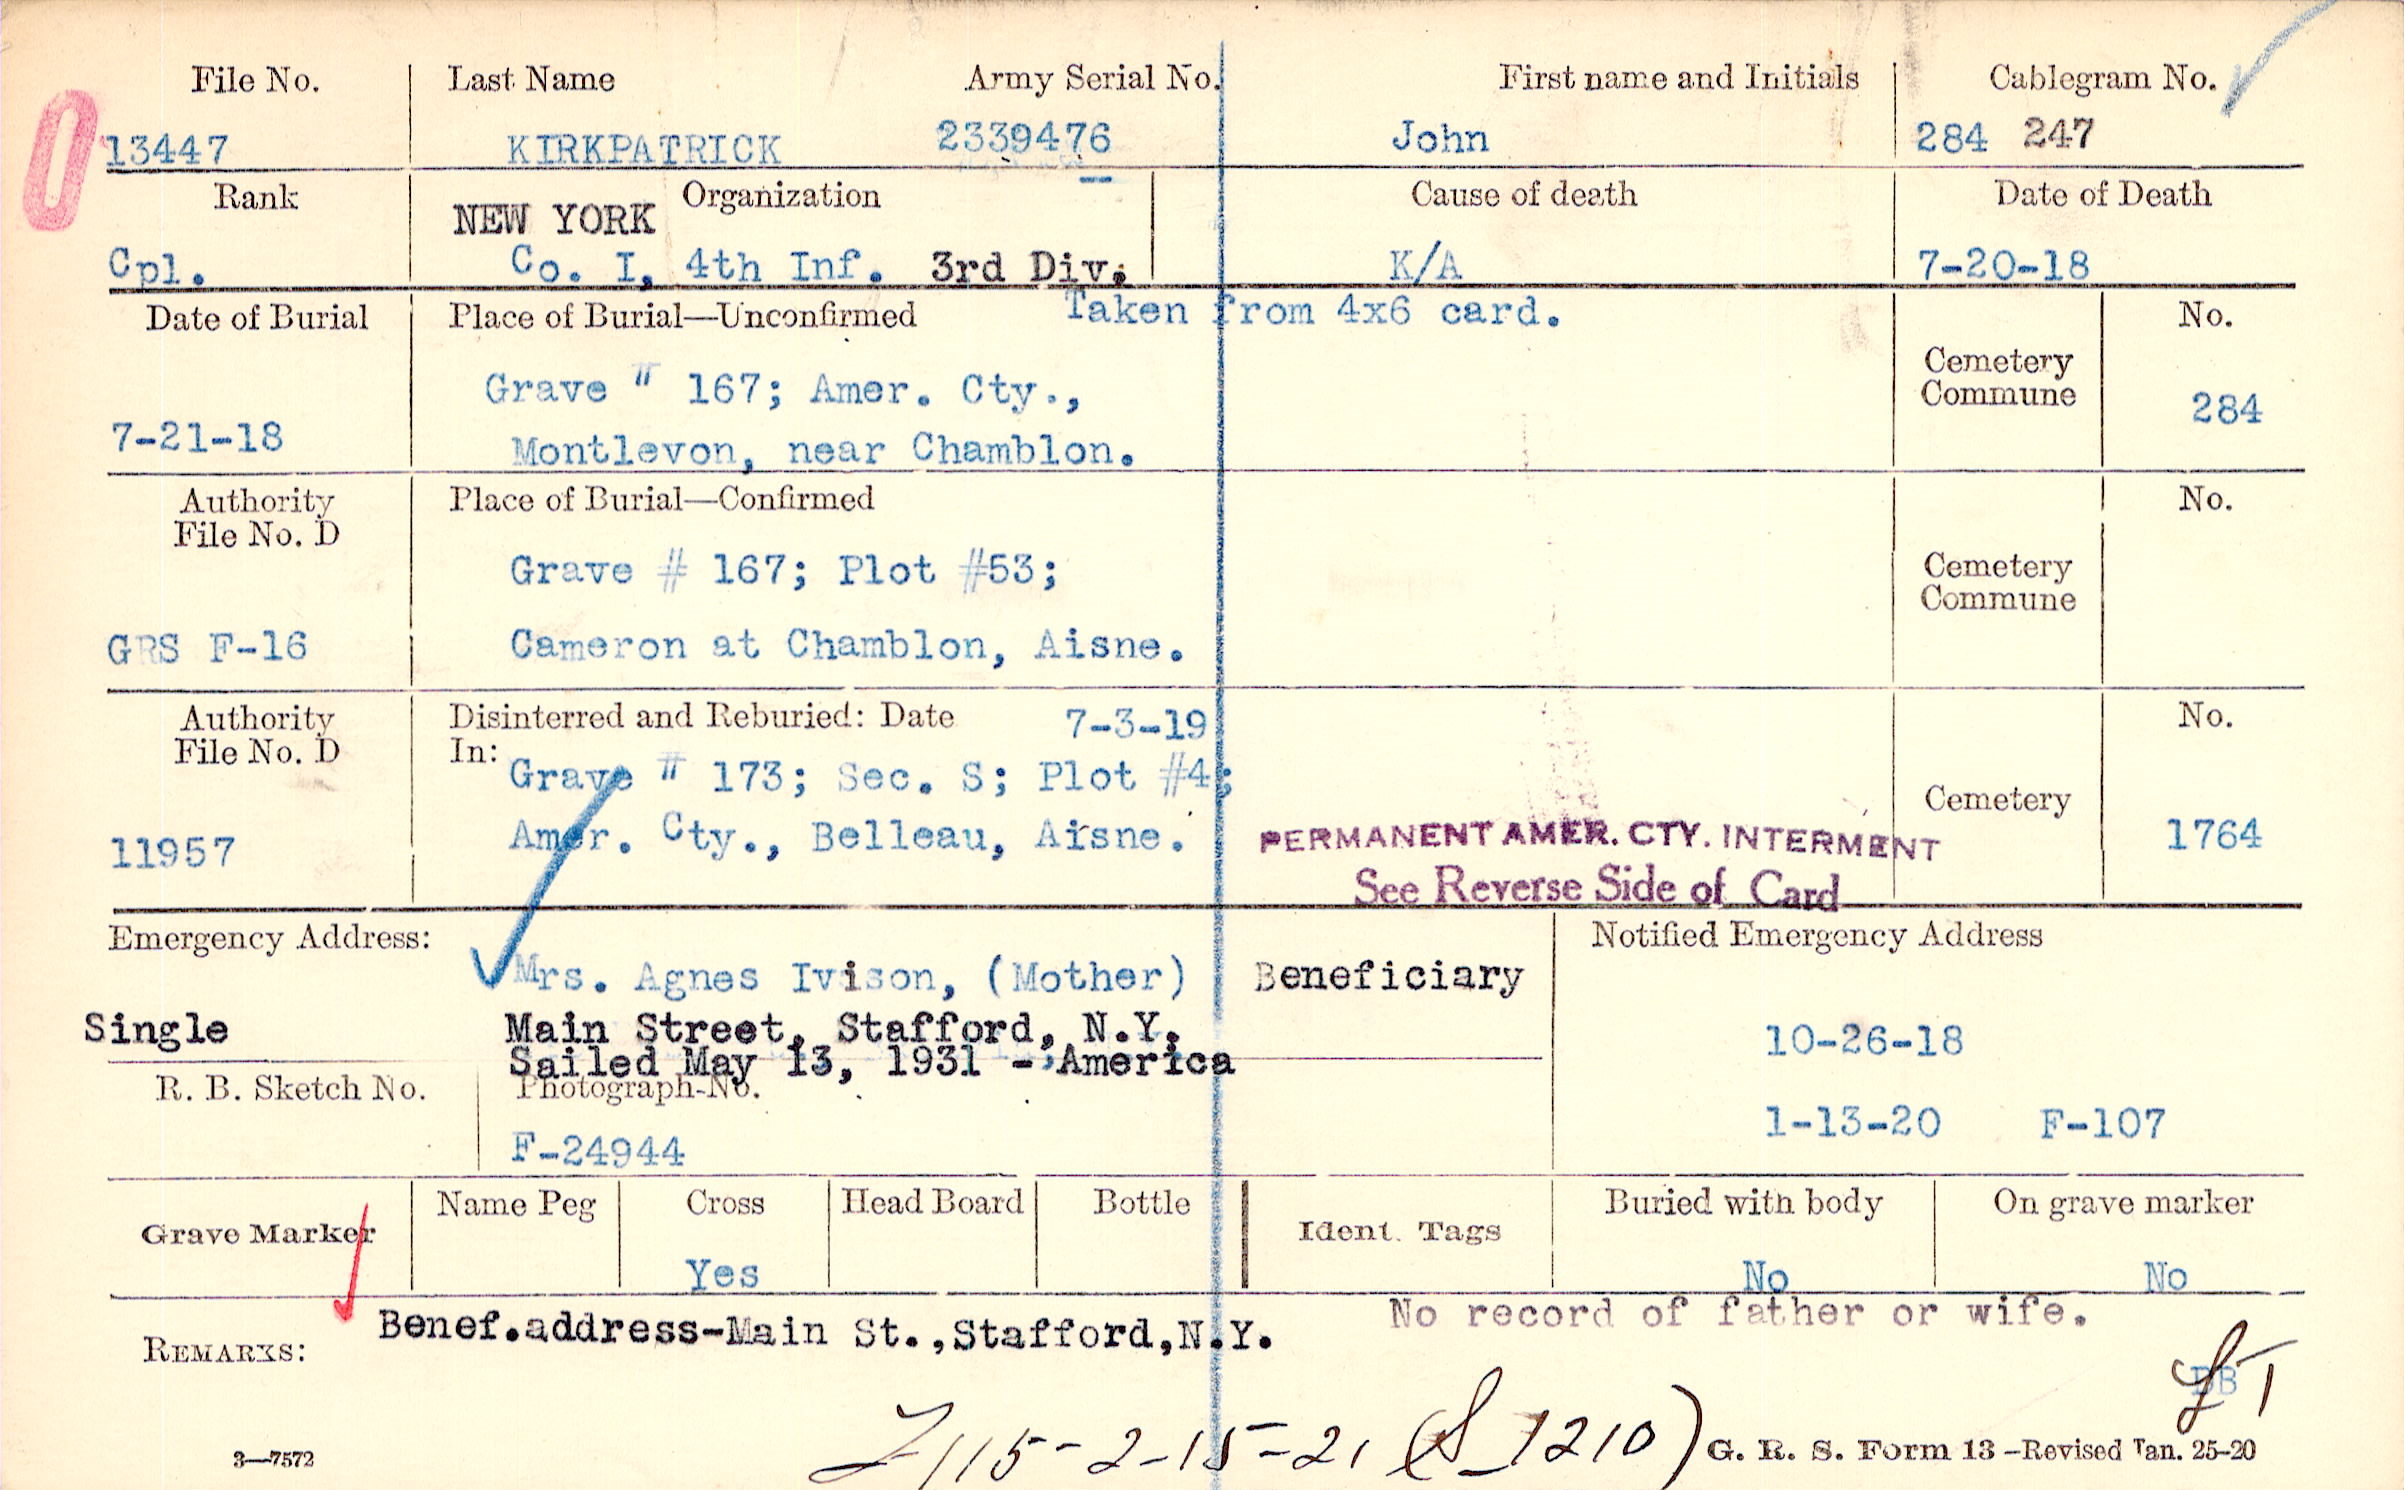 File No. Last Name Army Serial No. First name and Initials Cablegram No.
0 13447 KIRKPATRICK 2339476 John 284 247
Rank Organization Cause of death Date of Death
NEW YORK
Cpl. Co. I, 4th Inf. 3rd Div. K/A 7-20-18
Date of Burial Place of Burial—Unconfirmed Taken from 4x6 card. No.
Cemetery
Commune
Grave # 167; Amer. Cty., 284
7-21-18 Montlevon, near Chamblon.
Authority Place of Burial—Confirmed No.
File No. D
Grave # 167; Plot #53; Cemetery
Commune
GRS F-16 Cameron at Chamblon, Aisne.
Authority Disinterred and Reburied: Date 7-3-19 No.
File No. D In:
Grave # 173; Sec. S; Plot #4; Cemetery
11957 Amer. Cty., Belleau, Aisne. PERMANENT AMER. CTY. INTERMENT 1764
See Reverse Side of Card
Emergency Address: Notified Emergency Address
Mrs. Agnes Ivison, (Mother) Beneficiary
Single Main Street, Stafford, N.Y. 10-26-18
Sailed May 13, 1931 - America
R. B. Sketch No. Photograph-No.
F-24944 1-13-20 F-107
Grave Marker Name Peg Cross Head Board Bottle Ident. Tags Buried with body On grave marker
Yes No No
REMARKS: Benef.address-Main St.,Stafford,N.Y. No record of father or wife.
DB
3—7572 115-2-15-21 (S_1210) G. R. S. Form 13 -Revised Jan. 25-20